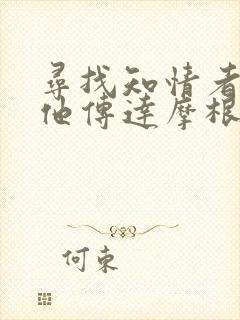 尋找知情者
他傳達摩根
何東